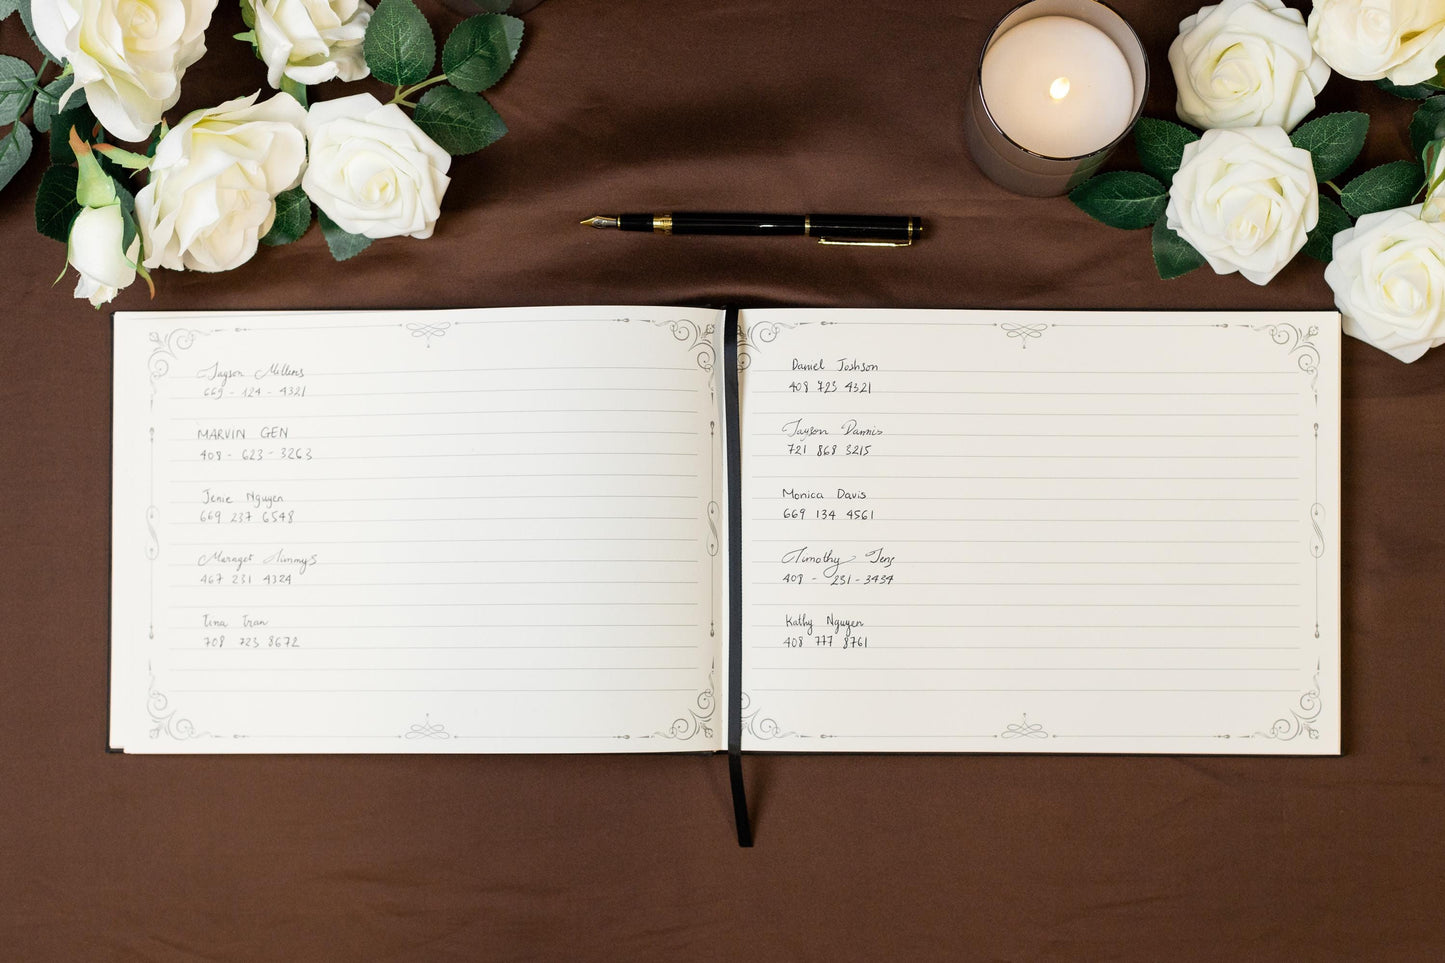 Jayson Millens
669 - 124 - 4321
MARVIN GEN
408 - 623 - 3263
Jenie Nguyen
669 237 6548
Marager Jimmys
467 231 4324
Tina Tran
708 723 8672
Daniel Joshson
408 723 4321
Jayson Dannis
721 868 3215
Monica Davis
669 134 4561
Timothy Jens
408 - 231 - 3434
Kathy Nguyen
408 777 8761